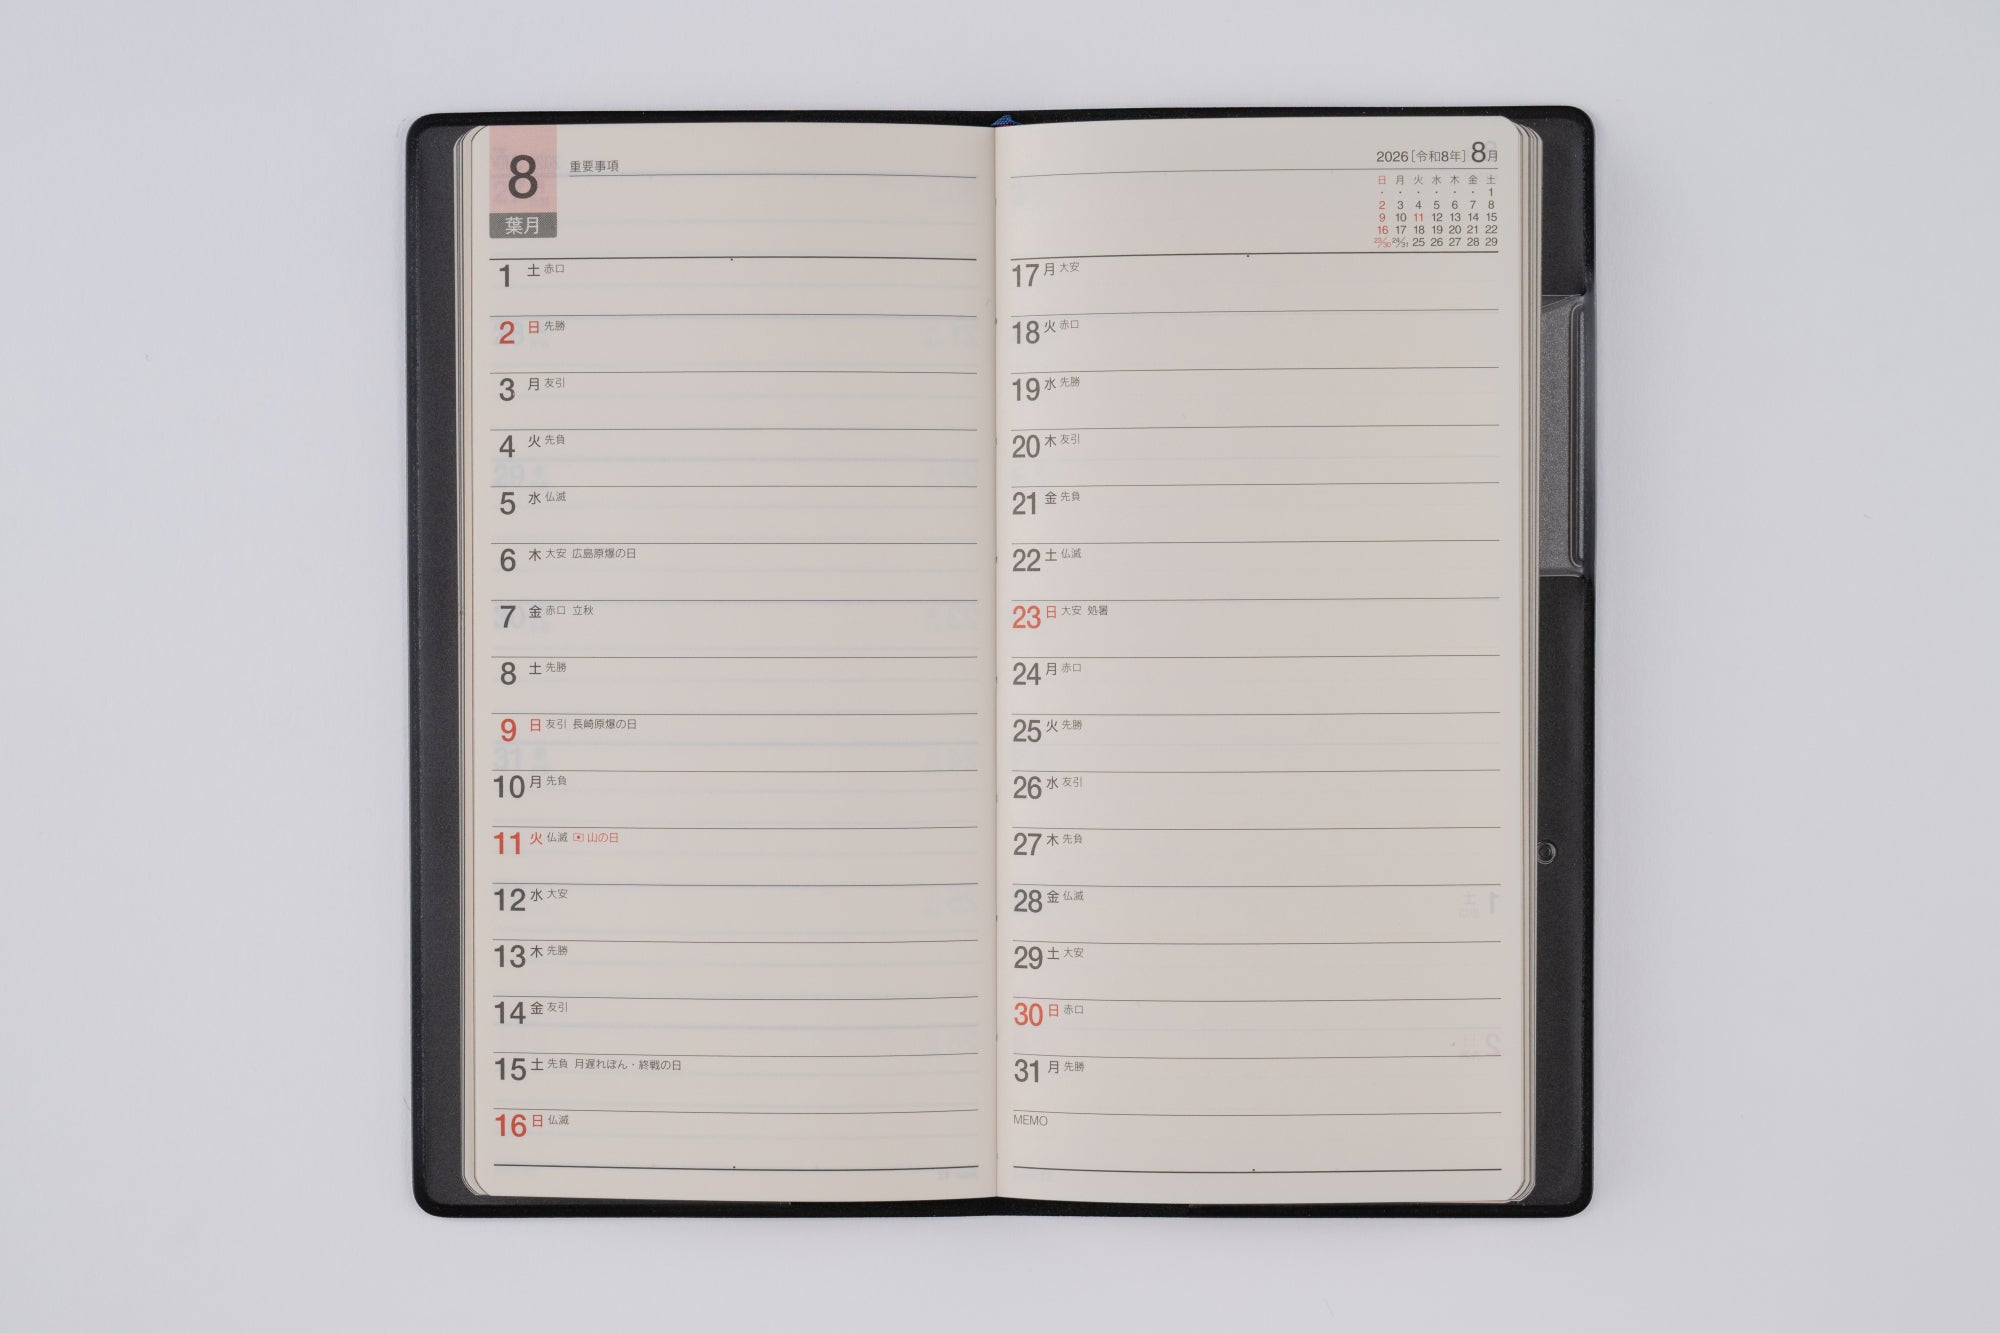 8
葉月
重要事項
1 土 赤口
2 日 先勝
3 月 友引
4 火 先負
5 水 仏滅
6 木 大安 広島原爆の日
7 金 赤口 立秋
8 土 先勝
9 日 友引 長崎原爆の日
10 月 先負
11 火 仏滅 山の日
12 水 大安
13 木 先勝
14 金 友引
15 土 先負 月遅れぼん・終戦の日
16 日 仏滅
2026[令和8年] 8月
日 月 火 水 木 金 土
・ ・ ・ ・ ・ ・ 1
2 3 4 5 6 7 8
9 10 11 12 13 14 15
16 17 18 19 20 21 22
23/30 24/31 25 26 27 28 29
17 月 大安
18 火 赤口
19 水 先勝
20 木 友引
21 金 先負
22 土 仏滅
23 日 大安 処暑
24 月 赤口
25 火 先勝
26 水 友引
27 木 先負
28 金 仏滅
29 土 大安
30 日 赤口
31 月 先勝
MEMO